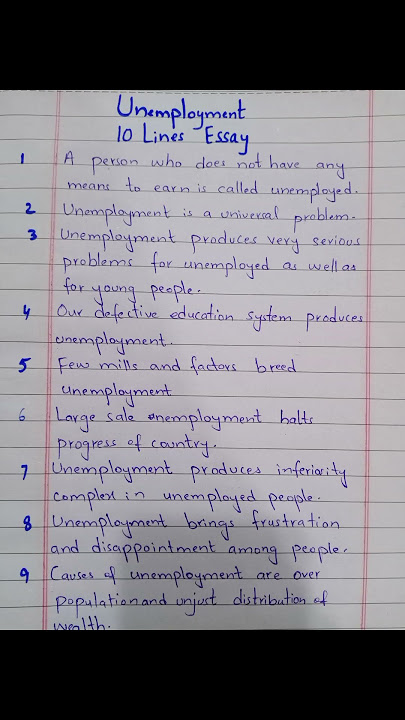 Unemployment
10 Lines Essay
1 A person who does not have any
means to earn is called unemployed.
2 Unemployment is a universal problem.
3 Unemployment produces very serious
problems for unemployed as well as
for young people.
4 Our defective education system produces
unemployment.
5 Few mills and factors breed
unemployment
6 Large sale unemployment halts
progress of country.
7 Unemployment produces inferiarity
complex in unemployed people.
8 Unemployment brings frustration
and disappointment among people.
9 Causes of unemployment are over
population and unjust distribution of
wealth.